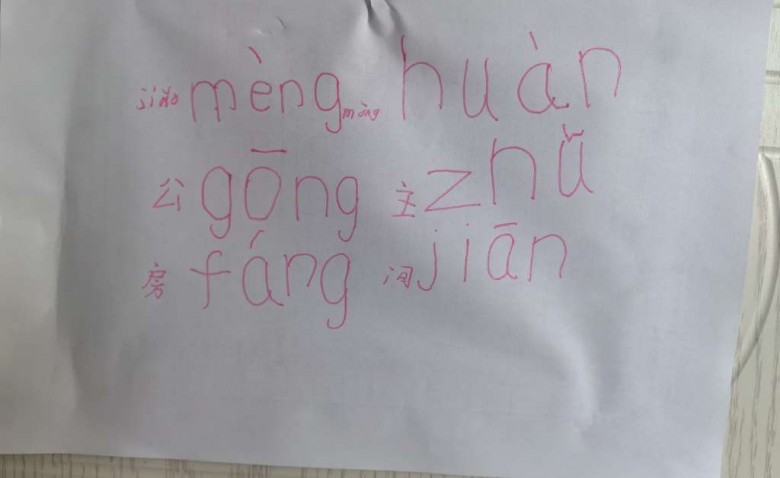 jiǎo mèng mèng huàn
公 gōng 主 zhǔ
房 fáng 间 jiān